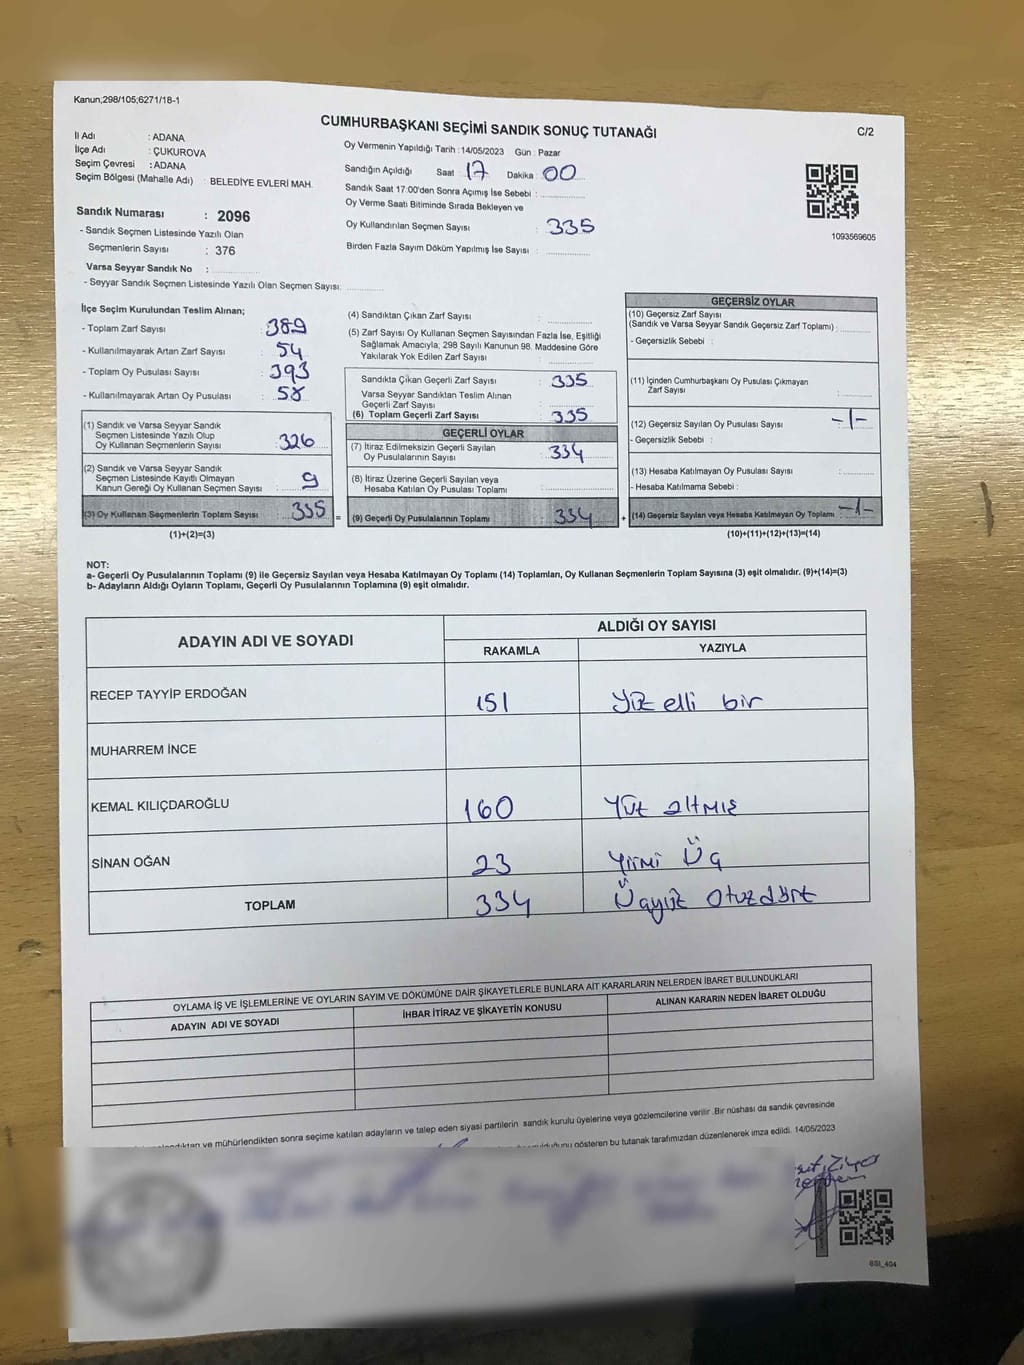 Kanun;298/105;6271/18-1
CUMHURBAŞKANI SEÇİMİ SANDIK SONUÇ TUTANAĞI
C/2
İl Adı : ADANA
İlçe Adı : ÇUKUROVA
Seçim Çevresi : ADANA
Seçim Bölgesi (Mahalle Adı) : BELEDİYE EVLERİ MAH.
Sandık Numarası : 2096
- Sandık Seçmen Listesinde Yazılı Olan
Seçmenlerin Sayısı : 376
Varsa Seyyar Sandık No :
- Seyyar Sandık Seçmen Listesinde Yazılı Olan Seçmen Sayısı:
Oy Vermenin Yapıldığı Tarih :14/05/2023 Gün : Pazar
Sandığın Açıldığı Saat : 17 Dakika : 00
Sandık Saat 17:00'den Sonra Açımış İse Sebebi :
Oy Verme Saati Bitiminde Sırada Bekleyen ve
Oy Kullandırılan Seçmen Sayısı : 335
Birden Fazla Sayım Döküm Yapılmış İse Sayısı :
1093569605
İlçe Seçim Kurulundan Teslim Alınan;
- Toplam Zarf Sayısı : 389
- Kullanılmayarak Artan Zarf Sayısı : 54
- Toplam Oy Pusulası Sayısı : 393
- Kullanılmayarak Artan Oy Pusulası : 58
(1) Sandık ve Varsa Seyyar Sandık
Seçmen Listesinde Yazılı Olup
Oy Kullanan Seçmenlerin Sayısı : 326
(2) Sandık ve Varsa Seyyar Sandık
Seçmen Listesinde Kayıtlı Olmayan
Kanun Gereği Oy Kullanan Seçmen Sayısı : 9
(3) Oy Kullanan Seçmenlerin Toplam Sayısı : 335
(1)+(2)=(3)
(4) Sandıktan Çıkan Zarf Sayısı :
(5) Zarf Sayısı Oy Kullanan Seçmen Sayısından Fazla İse, Eşitliği
Sağlamak Amacıyla; 298 Sayılı Kanunun 98. Maddesine Göre
Yakılarak Yok Edilen Zarf Sayısı :
Sandıkta Çıkan Geçerli Zarf Sayısı : 335
Varsa Seyyar Sandıktan Teslim Alınan
Geçerli Zarf Sayısı :
(6) Toplam Geçerli Zarf Sayısı : 335
GEÇERLİ OYLAR
(7) İtiraz Edilmeksizin Geçerli Sayılan
Oy Pusulalarının Sayısı : 334
(8) İtiraz Üzerine Geçerli Sayılan veya
Hesaba Katılan Oy Pusulası Toplamı :
= (9) Geçerli Oy Pusulalarının Toplamı : 334 +
GEÇERSİZ OYLAR
(10) Geçersiz Zarf Sayısı
(Sandık ve Varsa Seyyar Sandık Geçersiz Zarf Toplamı) :
- Geçersizlik Sebebi :
(11) İçinden Cumhurbaşkanı Oy Pusulası Çıkmayan
Zarf Sayısı :
(12) Geçersiz Sayılan Oy Pusulası Sayısı : -1-
- Geçersizlik Sebebi :
(13) Hesaba Katılmayan Oy Pusulası Sayısı :
- Hesaba Katılmama Sebebi :
(14) Geçersiz Sayılan veya Hesaba Katılmayan Oy Toplamı : -1-
(10)+(11)+(12)+(13)=(14)
NOT:
a- Geçerli Oy Pusulalarının Toplamı (9) ile Geçersiz Sayılan veya Hesaba Katılmayan Oy Toplamı (14) Toplamları, Oy Kullanan Seçmenlerin Toplam Sayısına (3) eşit olmalıdır. (9)+(14)=(3)
b- Adayların Aldığı Oyların Toplamı, Geçerli Oy Pusulalarının Toplamına (9) eşit olmalıdır.
ADAYIN ADI VE SOYADI ALDIĞI OY SAYISI
RAKAMLA YAZIYLA
RECEP TAYYİP ERDOĞAN 151 Yüz elli bir
MUHARREM İNCE
KEMAL KILIÇDAROĞLU 160 Yüz altmış
SİNAN OĞAN 23 Yirmi Üç
TOPLAM 334 Üçyüz otuzdört
OYLAMA İŞ VE İŞLEMLERİNE VE OYLARIN SAYIM VE DÖKÜMÜNE DAİR ŞİKAYETLERLE BUNLARA AİT KARARLARIN NELERDEN İBARET BULUNDUKLARI
ADAYIN ADI VE SOYADI İHBAR İTİRAZ VE ŞİKAYETİN KONUSU ALINAN KARARIN NEDEN İBARET OLDUĞU
ve mühürlendikten sonra seçime katılan adayların ve talep eden siyasi partilerin sandık kurulu üyelerine veya gözlemcilerine verilir .Bir nüshası da sandık çevresinde
gösteren bu tutanak tarafımızdan düzenlenerek imza edildi. 14/05/2023
BSI_404